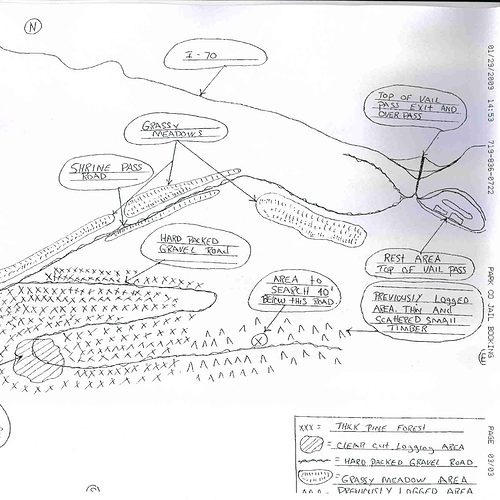 N
I-70
TOP OF VAIL
PASS EXIT AND
OVER PASS
GRASSY
MEADOWS
SHRINE PASS
ROAD
HARD PACKED
GRAVEL ROAD
REST AREA
TOP OF VAIL PASS
AREA to
SEARCH 40'
BELOW THIS ROAD.
PREVIOUSLY LOGGED
AREA, THIN AND
SCATTERED SMALL
TIMBER
X
XXX = THICK PINE FOREST
= CLEAR CUT LOGGING AREA
= HARD PACKED GRAVEL ROAD
= GRASSY MEADOW AREA
= PREVIOUSLY LOGGED AREA
01/29/2009 14:53 719-836-0722 PARK CO JAIL BOOKING PAGE 03/03